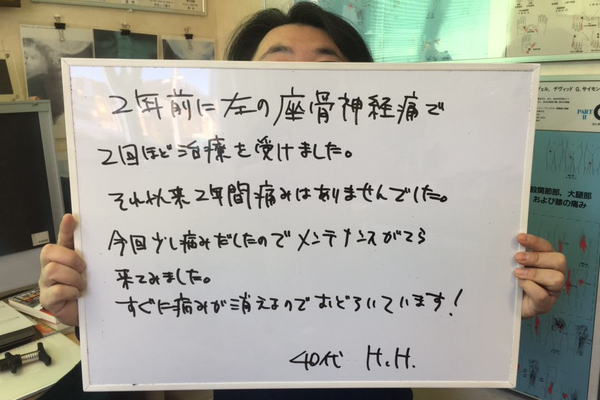 2年前に左の座骨神経痛で
2回ほど治療を受けました。
それ以来2年間痛みはありませんでした。
今回少し痛みだしたのでメンテナンスがてら
来てみました。
すぐに痛みが消えるのでおどろいています!
40代 H.H.
ェル、デヴィッド G.サイモン
PART
II
股関節部、大腿部
および膝の痛み